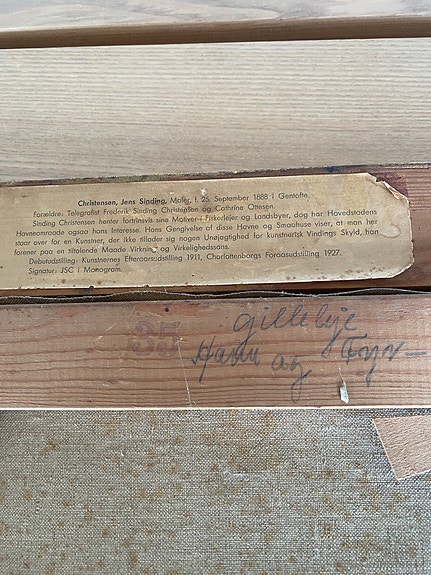 Christensen, Jens Sinding, Maler, f. 25. September 1888 i Gentofte.
Forældre: Telegrafist Frederik Sinding Christensen og Cathrine Ottesen.
Sinding Christensen henter fortrinsvis sine Motiver i Fiskerlejer og Landsbyer, dog har Hovedstadens
Havneomraade ogsaa hans Interesse. Hans Gengivelse af disse Havne og Smaahuse viser, at man her
staar over for en Kunstner, der ikke tillader sig nogen Unøjagtighed for kunstnerisk Vindings Skyld, han
forener paa en tiltalende Maade Virkning og Virkelighedssans.
Debutudstilling: Kunstnernes Efteraarsudstilling 1911, Charlottenborgs Foraarsudstilling 1927.
Signatur: JSC i Monogram.
35
gilleleje
Havn og Fyr